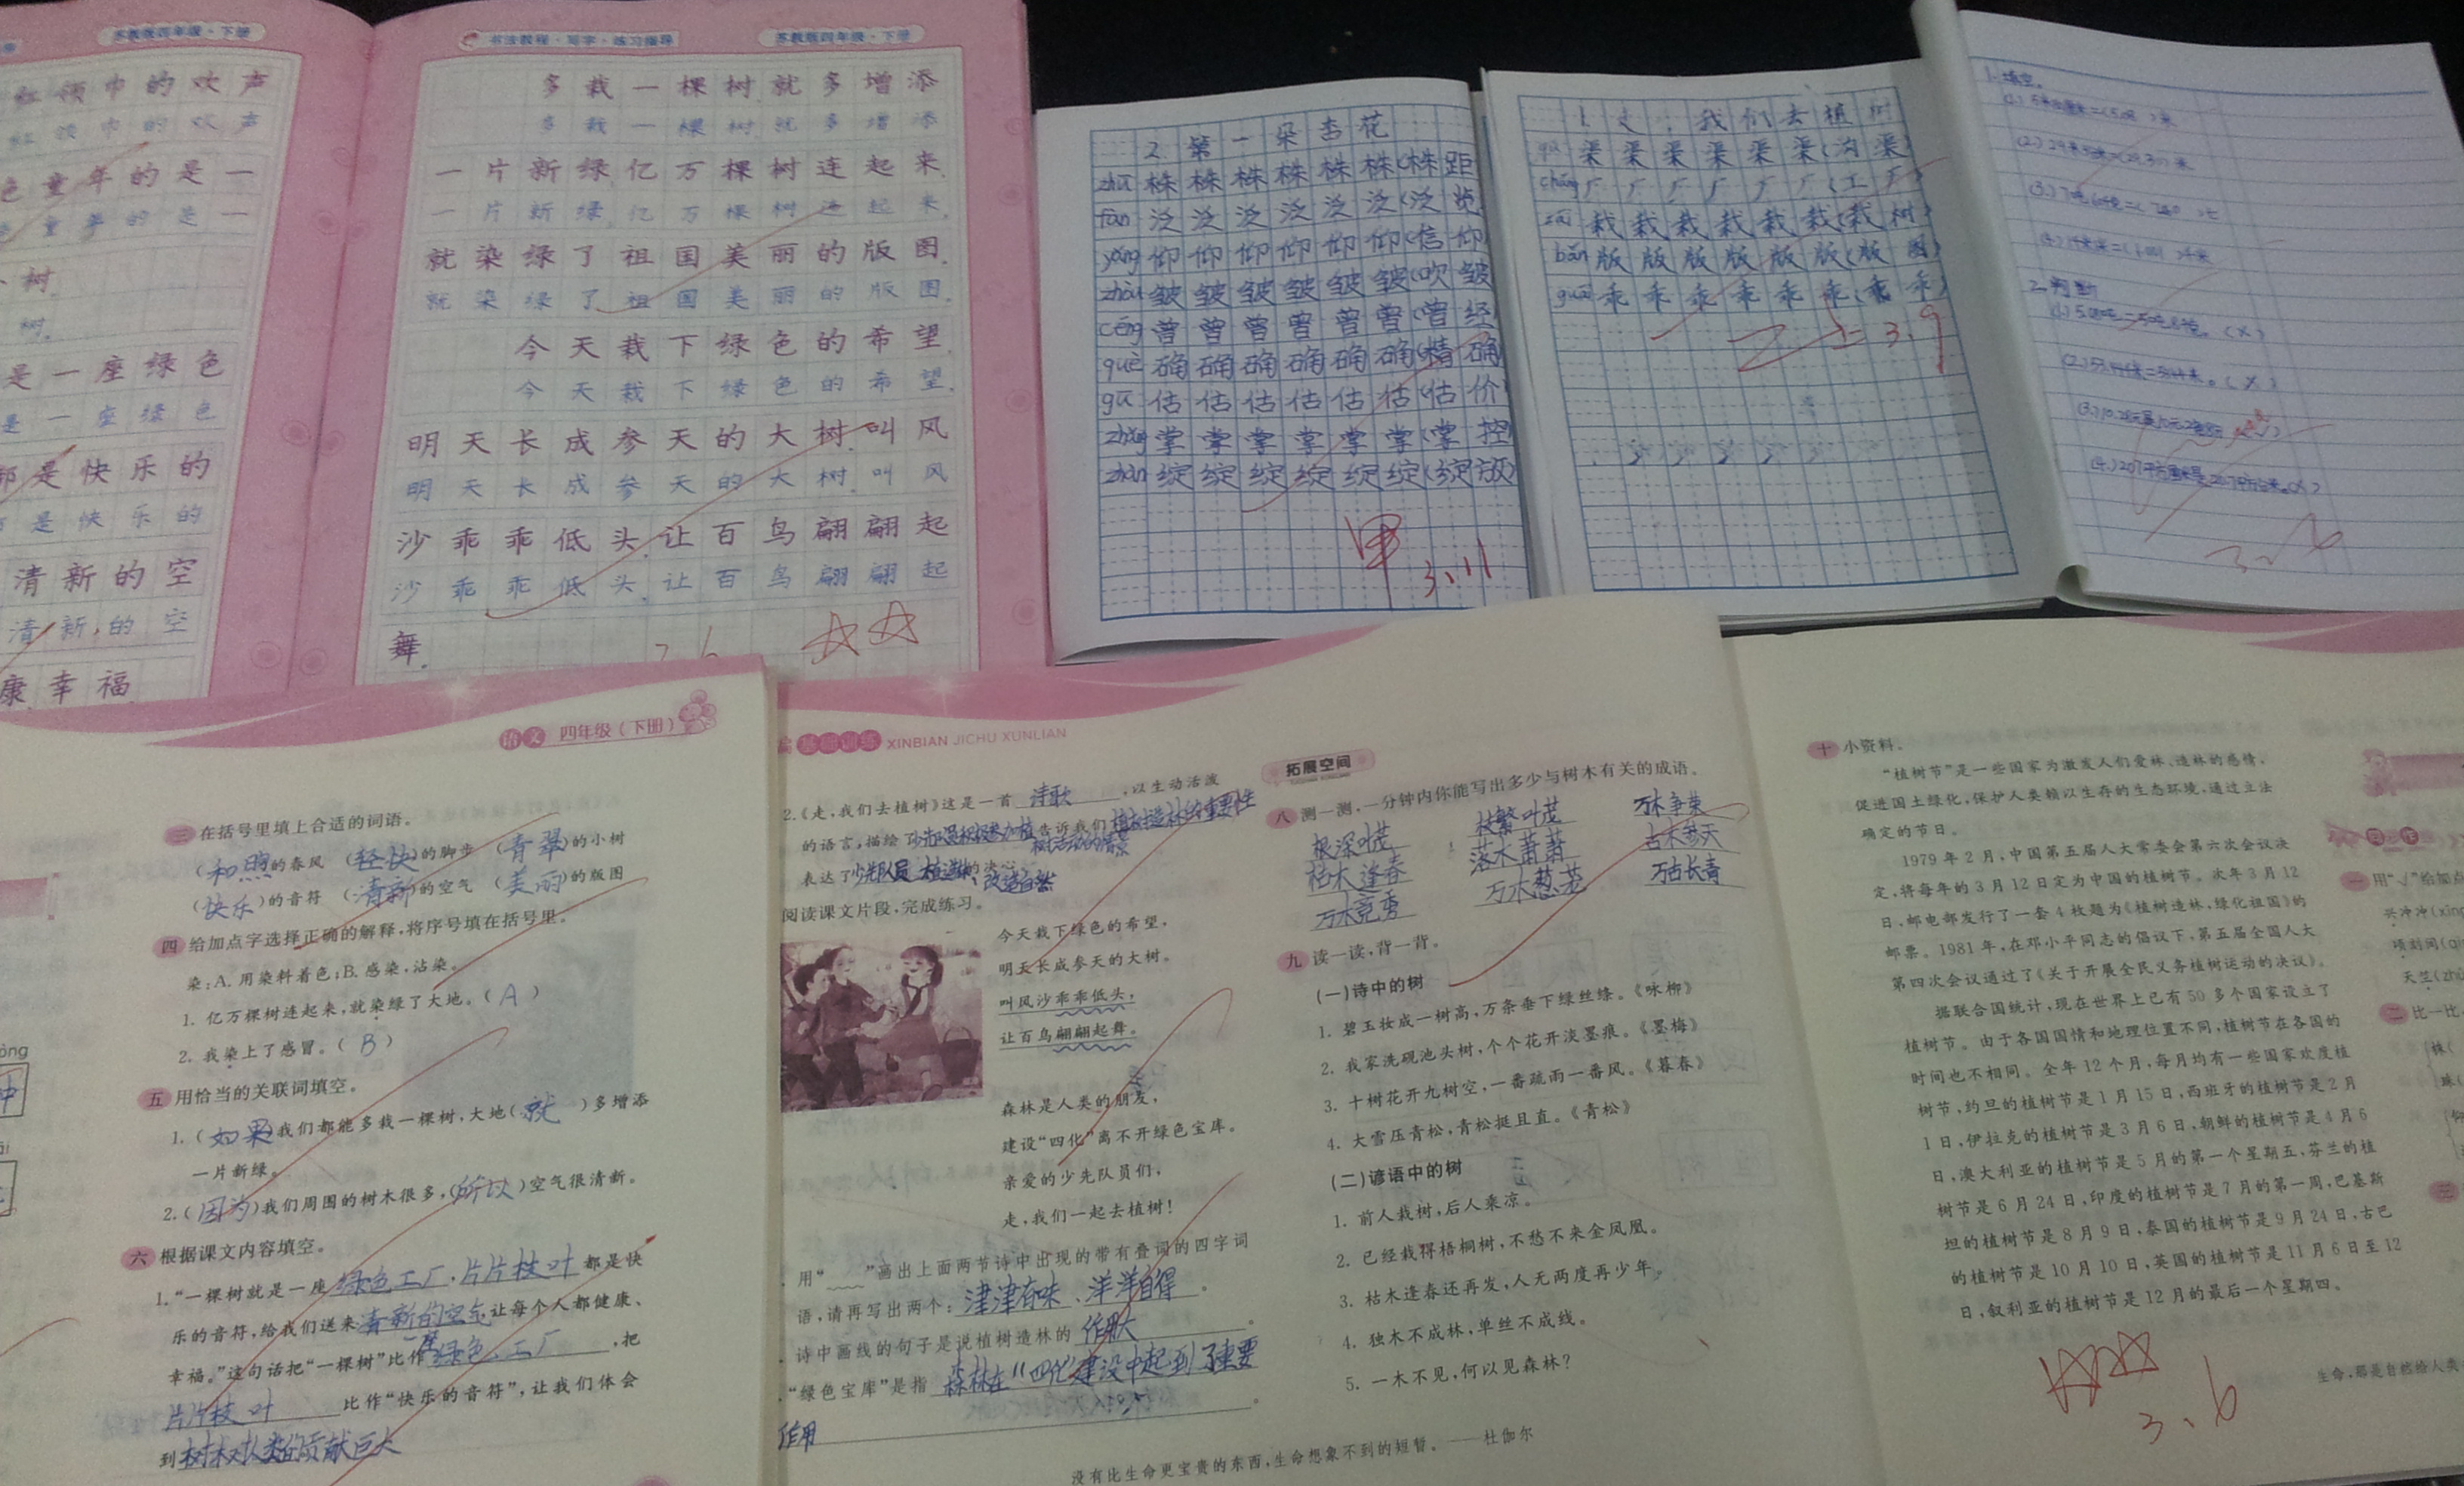 苏教版四年级·下册
红领巾的欢声
红领巾的欢声
色童年的是一
色童年的是一
树.
树.
是一座绿色
是一座绿色
都是快乐的
是快乐的
清新的空
清新的空
康幸福
书法教程·写字·练习指导
苏教版四年级·下册
多栽一棵树.就多增添
多栽一棵树.就多增添
一片新绿.亿万棵树连起来.
一片新绿.亿万棵树连起来.
就染绿了祖国美丽的版图.
就染绿了祖国美丽的版图.
今天栽下绿色的希望.
今天栽下绿色的希望.
明天长成参天的大树.叫风
明天长成参天的大树.叫风
沙乖乖低头.让百鸟翩翩起
沙乖乖低头.让百鸟翩翩起
舞.
2 第一朵杏花
zhū 株株株株株株(株距
fàn 泛泛泛泛泛泛(泛览
yǎng 仰仰仰仰仰仰(信仰)
zhòu 皱皱皱皱皱皱(吹皱
céng 曾曾曾曾曾曾(曾经
què 确确确确确确(精确
gū 估估估估估估(估价)
zhǎng 掌掌掌掌掌掌(掌控)
zhàn 绽绽绽绽绽绽(绽放)
3.11
1. 走,我们去植树
qú 渠渠渠渠渠渠(沟渠)
chǎng 厂厂厂厂厂厂(工厂)
zāi 栽栽栽栽栽栽(栽树)
bǎn 版版版版版版(版图)
guāi 乖乖乖乖乖乖(乖乖)
3.9
1.填空。
2.判断
3.6
语文 四年级(下册)
三 在括号里填上合适的词语。
(和煦)的春风 (轻快)的脚步 (青翠)的小树
(快乐)的音符 (清新)的空气 (美丽)的版图
四 给加点字选择正确的解释,将序号填在括号里。
染:A. 用染料着色;B. 感染,沾染。
1. 亿万棵树连起来,就染绿了大地。(A)
2. 我染上了感冒。(B)
五 用恰当的关联词填空。
1. (如果)我们都能多栽一棵树,大地(就)多增添
一片新绿。
2. (因为)我们周围的树木很多,(所以)空气很清新。
六 根据课文内容填空。
1. “一棵树就是一座绿色工厂,片片枝叶都是快
乐的音符,给我们送来清新的空气让每个人都健康、
幸福。”这句话把“一棵树”比作一座绿色工厂,把
片片枝叶比作“快乐的音符”,让我们体会
到树木对人类的贡献巨大
基础训练 XINBIAN JICHU XUNLIAN
2.《走,我们去植树》这是一首诗歌,以生动活泼
的语言,描绘了 告诉我们植树造林的重要性
表达了少先队员 的决心
阅读课文片段,完成练习。
今天栽下绿色的希望,
明天长成参天的大树。
叫风沙乖乖低头,
让百鸟翩翩起舞。
森林是人类的朋友,
建设“四化”离不开绿色宝库。
亲爱的少先队员们,
走,我们一起去植树!
用“ ”画出上面两节诗中出现的带有叠词的四字词
语,请再写出两个:津津有味、洋洋自得。
诗中画线的句子是说植树造林的作用大。
“绿色宝库”是指森林在“四化”建设中起到了重要
作用
拓展空间
八 测一测,一分钟内你能写出多少与树木有关的成语。
根深叶茂 枝繁叶茂 万木争荣
枯木逢春 落木萧萧 古木参天
万木竞秀 万木葱茏 万古长青
九 读一读,背一背。
(一)诗中的树
1. 碧玉妆成一树高,万条垂下绿丝绦。《咏柳》
2. 我家洗砚池头树,个个花开淡墨痕。《墨梅》
3. 十树花开九树空,一番疏雨一番风。《暮春》
4. 大雪压青松,青松挺且直。《青松》
(二)谚语中的树
1. 前人栽树,后人乘凉。
2. 已经栽得梧桐树,不愁不来金凤凰。
3. 枯木逢春还再发,人无两度再少年。
4. 独木不成林,单丝不成线。
5. 一木不见,何以见森林?
没有比生命更宝贵的东西,生命想象不到的短暂。——杜伽尔
十 小资料。
“植树节”是一些国家为激发人们爱林、造林的感情,
促进国土绿化,保护人类赖以生存的生态环境,通过立法
确定的节日。
1979年2月,中国第五届人大常委会第六次会议决
定,将每年的3月12日定为中国的植树节。次年3月12
日,邮电部发行了一套4枚题为《植树造林,绿化祖国》的
邮票。1981年,在邓小平同志的倡议下,第五届全国人大
第四次会议通过了《关于开展全民义务植树运动的决议》。
据联合国统计,现在世界上已有50多个国家设立了
植树节。由于各国国情和地理位置不同,植树节在各国的
时间也不相同。全年12个月,每月均有一些国家欢度植
树节,约旦的植树节是1月15日,西班牙的植树节是2月
1日,伊拉克的植树节是3月6日,朝鲜的植树节是4月6
日,澳大利亚的植树节是5月的第一个星期五,芬兰的植
树节是6月24日,印度的植树节是7月的第一周,巴基斯
坦的植树节是8月9日,泰国的植树节是9月24日,古巴
的植树节是10月10日,英国的植树节是11月6日至12
日,叙利亚的植树节是12月的最后一个星期四。
3.6
一 用“√”给加点
兴冲冲(xīng
顷刻间(qǐ
天竺(zhú
二 比一比
株(
珠(
三
生命,那是自然给人类